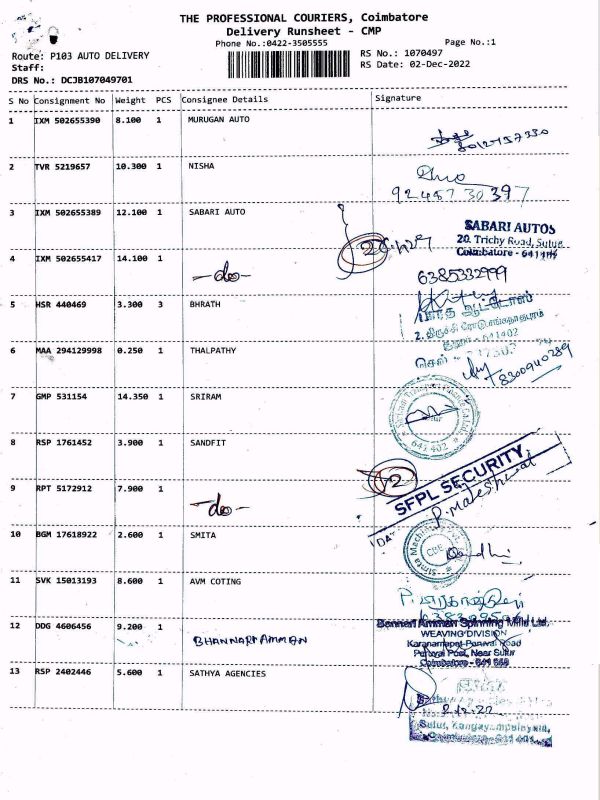 THE PROFESSIONAL COURIERS, Coimbatore
Delivery Runsheet - CMP
Phone No.:0422-3505555 Page No.:1
Route: P103 AUTO DELIVERY RS No.: 1070497
Staff: RS Date: 02-Dec-2022
DRS No.: DCJB107049701
S No Consignment No Weight PCS Consignee Details Signature
1 IXM 502655390 8.100 1 MURUGAN AUTO
2 TVR 5219657 10.300 1 NISHA
92457 30397
3 IXM 502655389 12.100 1 SABARI AUTO
SABARI AUTOS
20. Trichy Road, Sulur
Coimbatore - 641 402
4 IXM 502655417 14.100 1 -do- 2
6385332999
5 HSR 440469 3.300 3 BHRATH
641402
6 MAA 294129998 0.250 1 THALPATHY
செல்
8300940289
7 GMP 531154 14.350 1 SRIRAM
641 402
8 RSP 1761452 3.900 1 SANDFIT
SFPL SECURITY
9 RPT 5172912 7.900 1 -do- 2
10 BGM 17618922 2.600 1 SMITA
11 SVK 15013193 8.600 1 AVM COTING
12 DDG 4606456 9.200 1 BHANNARI AMMAN
Bannari Amman Spinning Mills Ltd.
WEAVING DIVISION
Karanampet-Paruvai Road
Paruvai Post, Near Sulur
Coimbatore - 641 658
13 RSP 2402446 5.600 1 SATHYA AGENCIES
2.12.22
Sulur, Kangayampalayam,